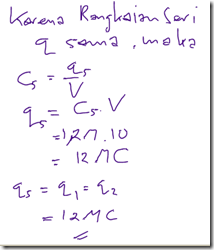 Karena Rangkaian Seri
q sama, maka
Cs = qs/V
qs = Cs.V
= 1,2M.10
= 12 MC
qs = q1 = q2
= 12MC